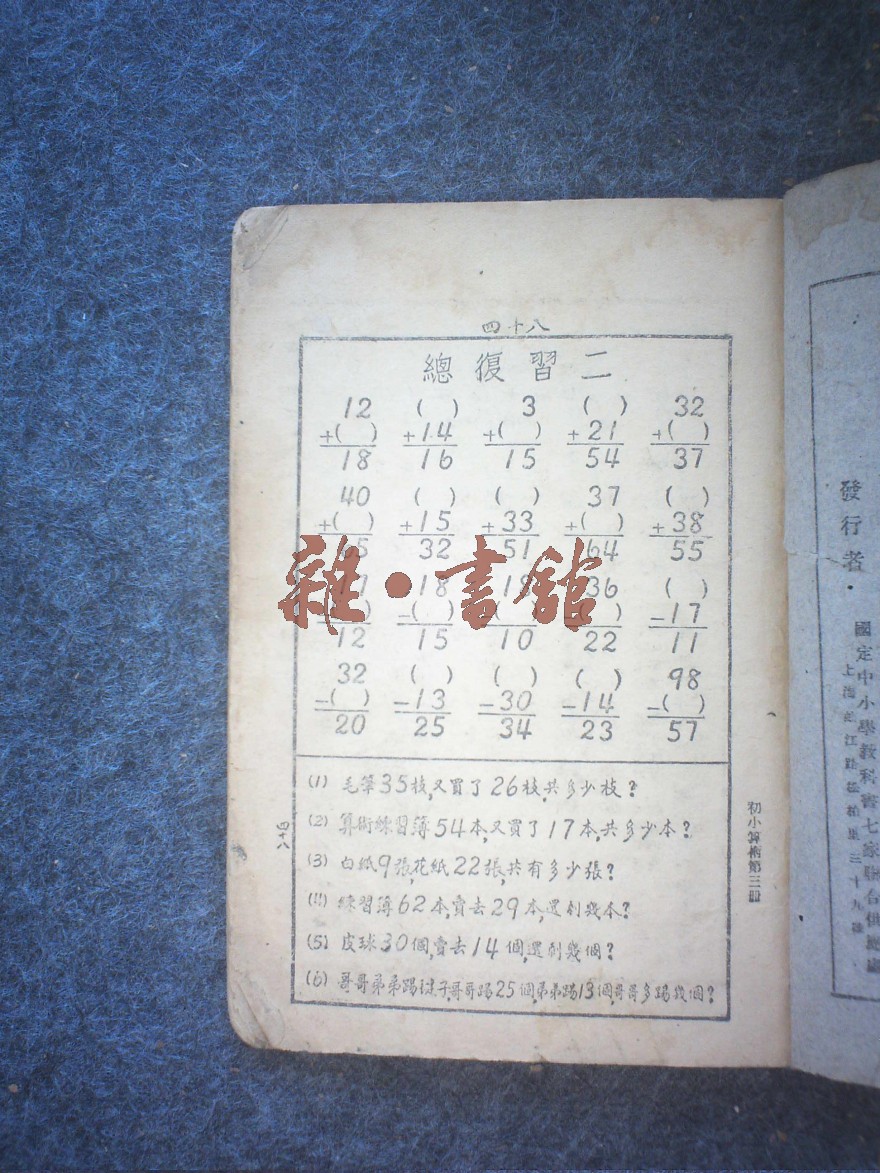 四十八
總復習二
12 ( ) 3 ( ) 32
+( ) +14 +( ) +21 +( )
18 16 15 54 37
40 ( ) ( ) 37 ( )
+( ) +15 +33 +( ) +38
65 32 51 64 55
18 18 36 ( )
-( ) -17
12 15 10 22 11
32 ( ) ( ) ( ) 98
-( ) -13 -30 -14 -( )
20 25 34 23 57
雜·書館
(1) 毛筆35枝,又買了26枝,共多少枝?
(2) 算術練習簿54本,又買了17本,共多少本?
(3) 白紙9張,花紙22張,共有多少張?
(4) 練習簿62本,賣去29本,還剩幾本?
(5) 皮球30個,賣去14個,還剩幾個?
(6) 哥哥弟弟踢毽子,哥哥踢25個,弟弟踢13個,哥哥多踢幾個?
四十八
初小算術第三冊
發行者
國定中小學教科書七家聯合供應處
上海